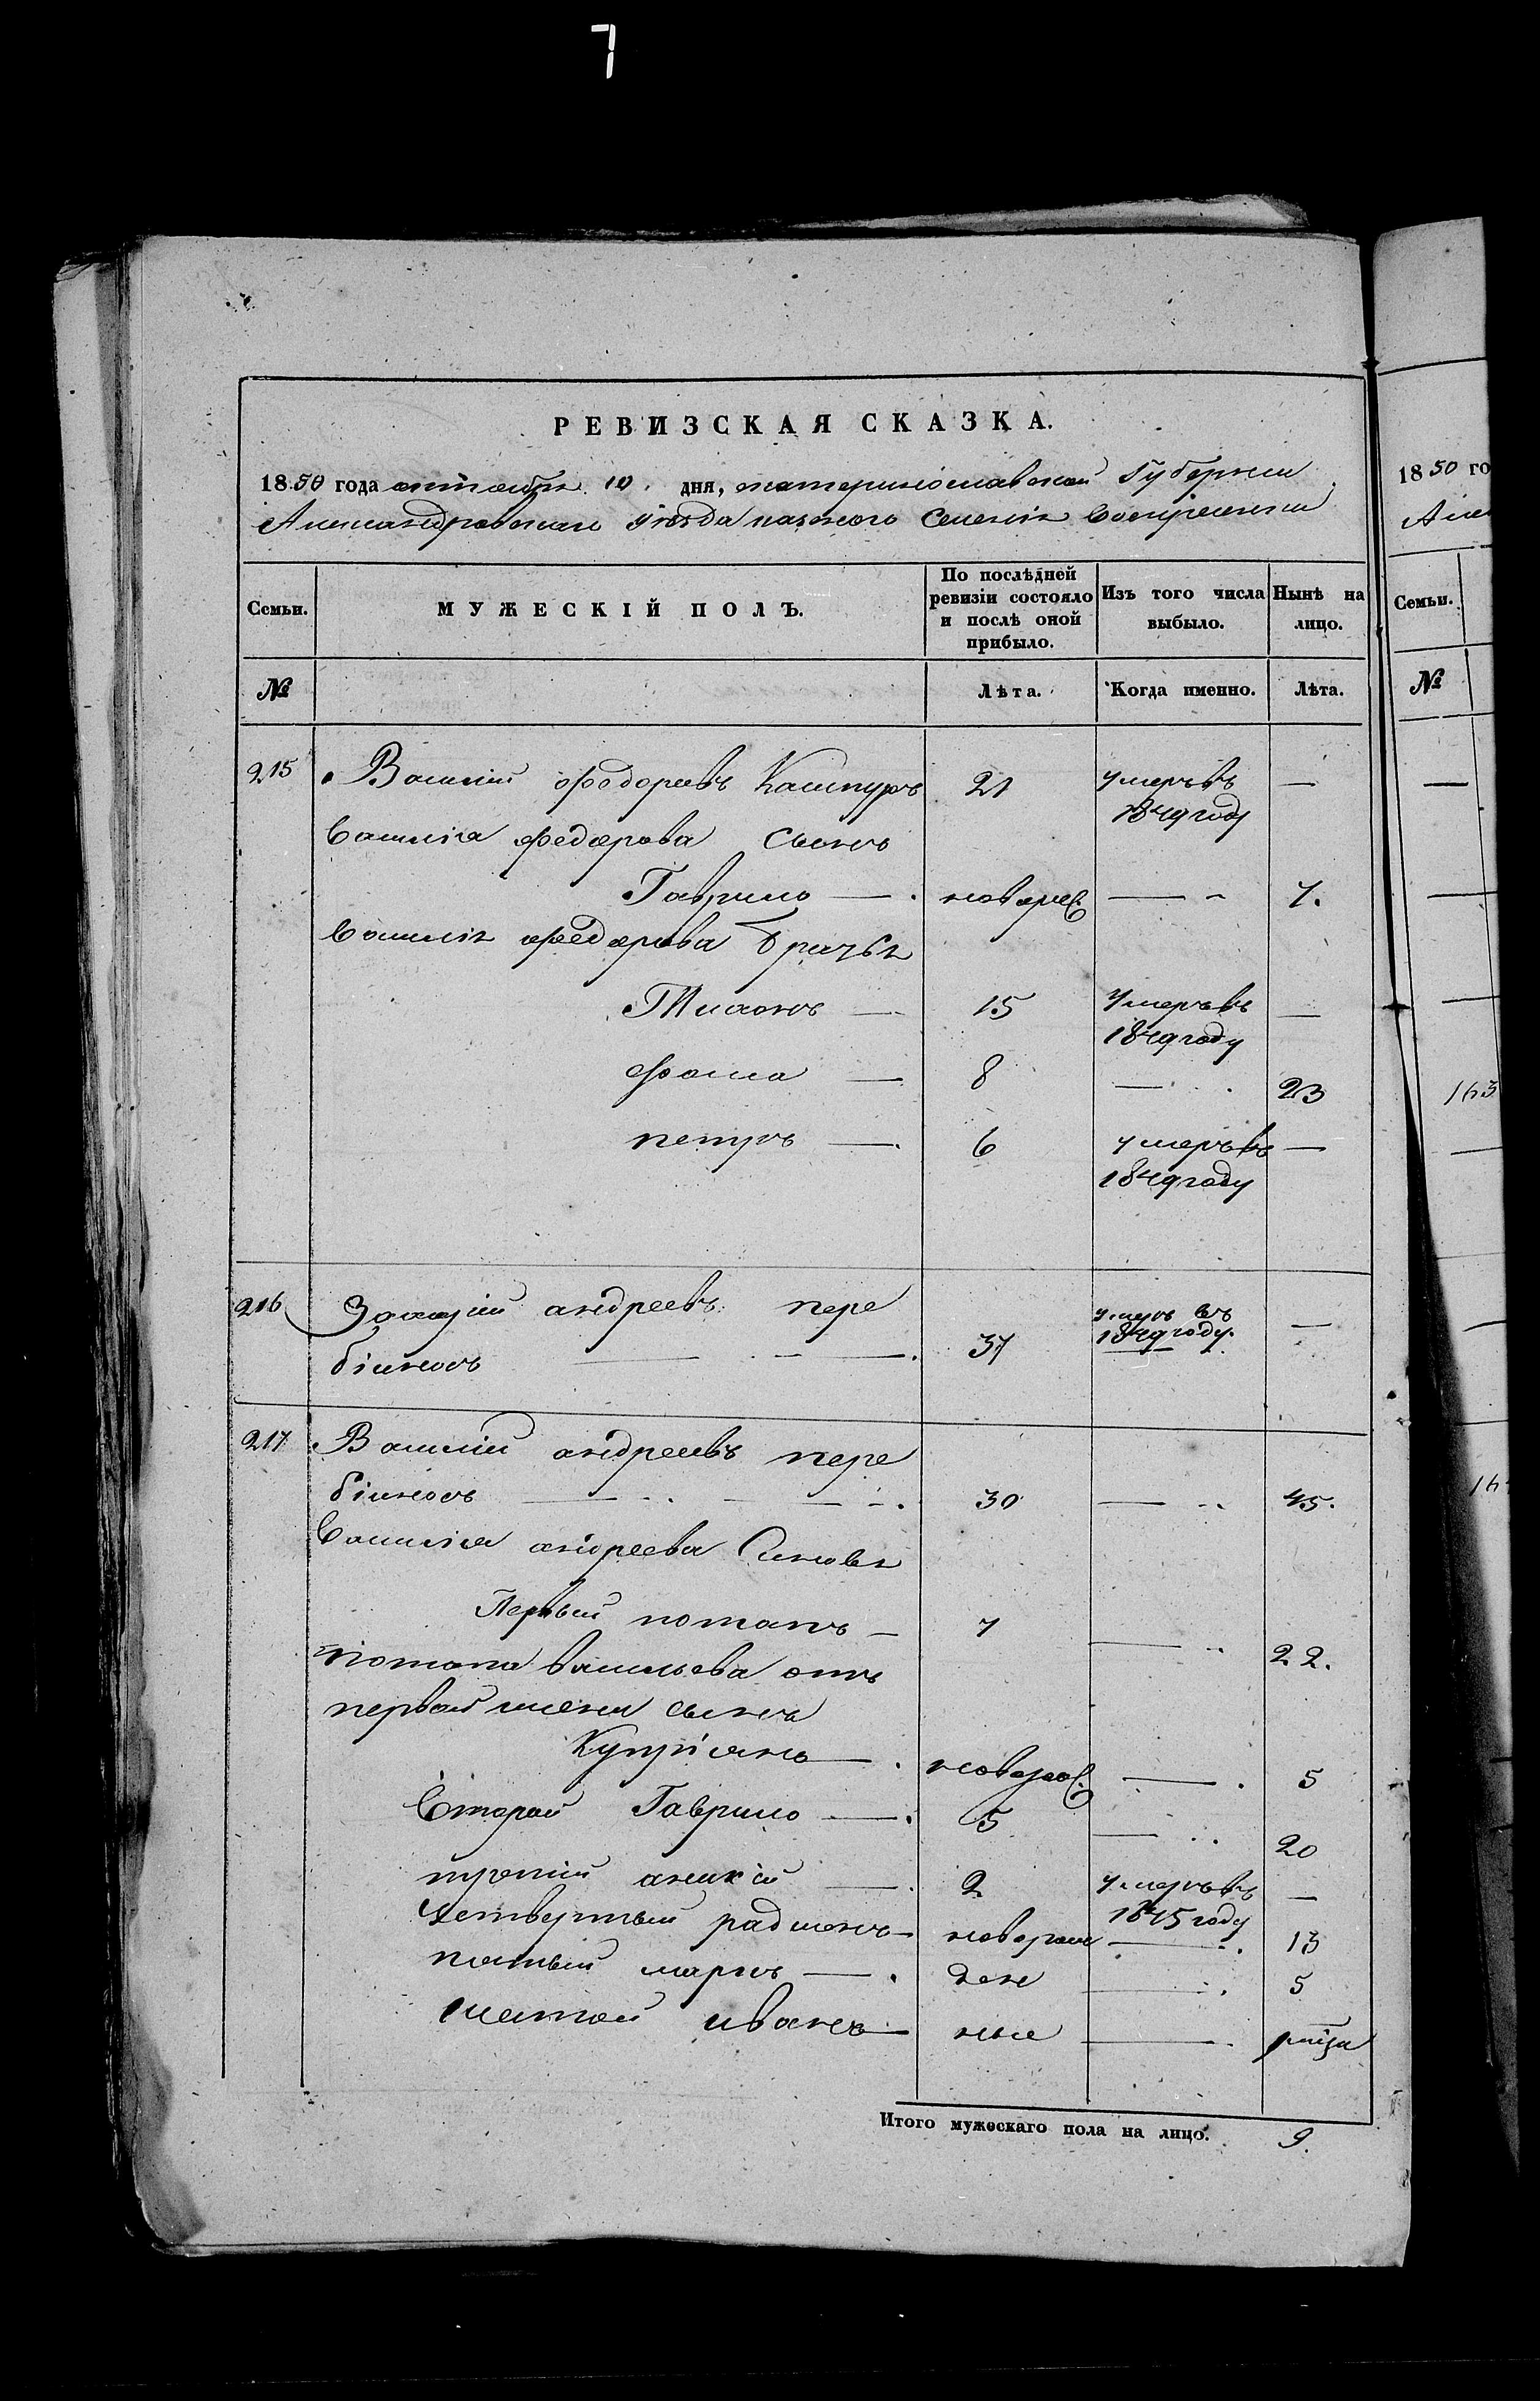 7
РЕВИЗСКАЯ СКАЗКА.
1850 года октября 10. дня, екатеринославской Губернии
Александровскаго уѣзда казеного Селенія Воскресенки
Семьи. МУЖЕСКІЙ ПОЛЪ. По послѣдней ревизіи состояло и послѣ оной прибыло. Изъ того числа выбыло. Нынѣ на лицо.
№ Лѣта. Когда именно. Лѣта.
215 Василій Федоревъ Кашпуръ 21 умеръ въ —
1849 году
Василія Федорова Сынъ
Гаврило — новорож — 7.
Василія Федорова Братья
Тихонъ — 15 умеръ въ —
1849 году
Фома — 8 — 23
петръ — 6 умеръ въ —
1849 году
216 андреевъ пере умеръ въ —
біиносъ — 37 1849 году.
217 Василій андреевъ пере
біиносъ — 30 — 45.
Василія андреева Синовя
Первый потапъ — 7 — 22.
Потапа васильева отъ
первой жени сынъ
Купріянъ — новорож — 5
Второй Гаврило — 5 — 20
третій 2 умеръ въ —
1845 году
Четвертый радионъ — новорож — 13
пятый марко — ден — 5
шестой иванъ — ные —
Итого мужескаго пола на лицо. 9.
1850 го
Але
Семьи.
№
—
—
—
163
—
—
16